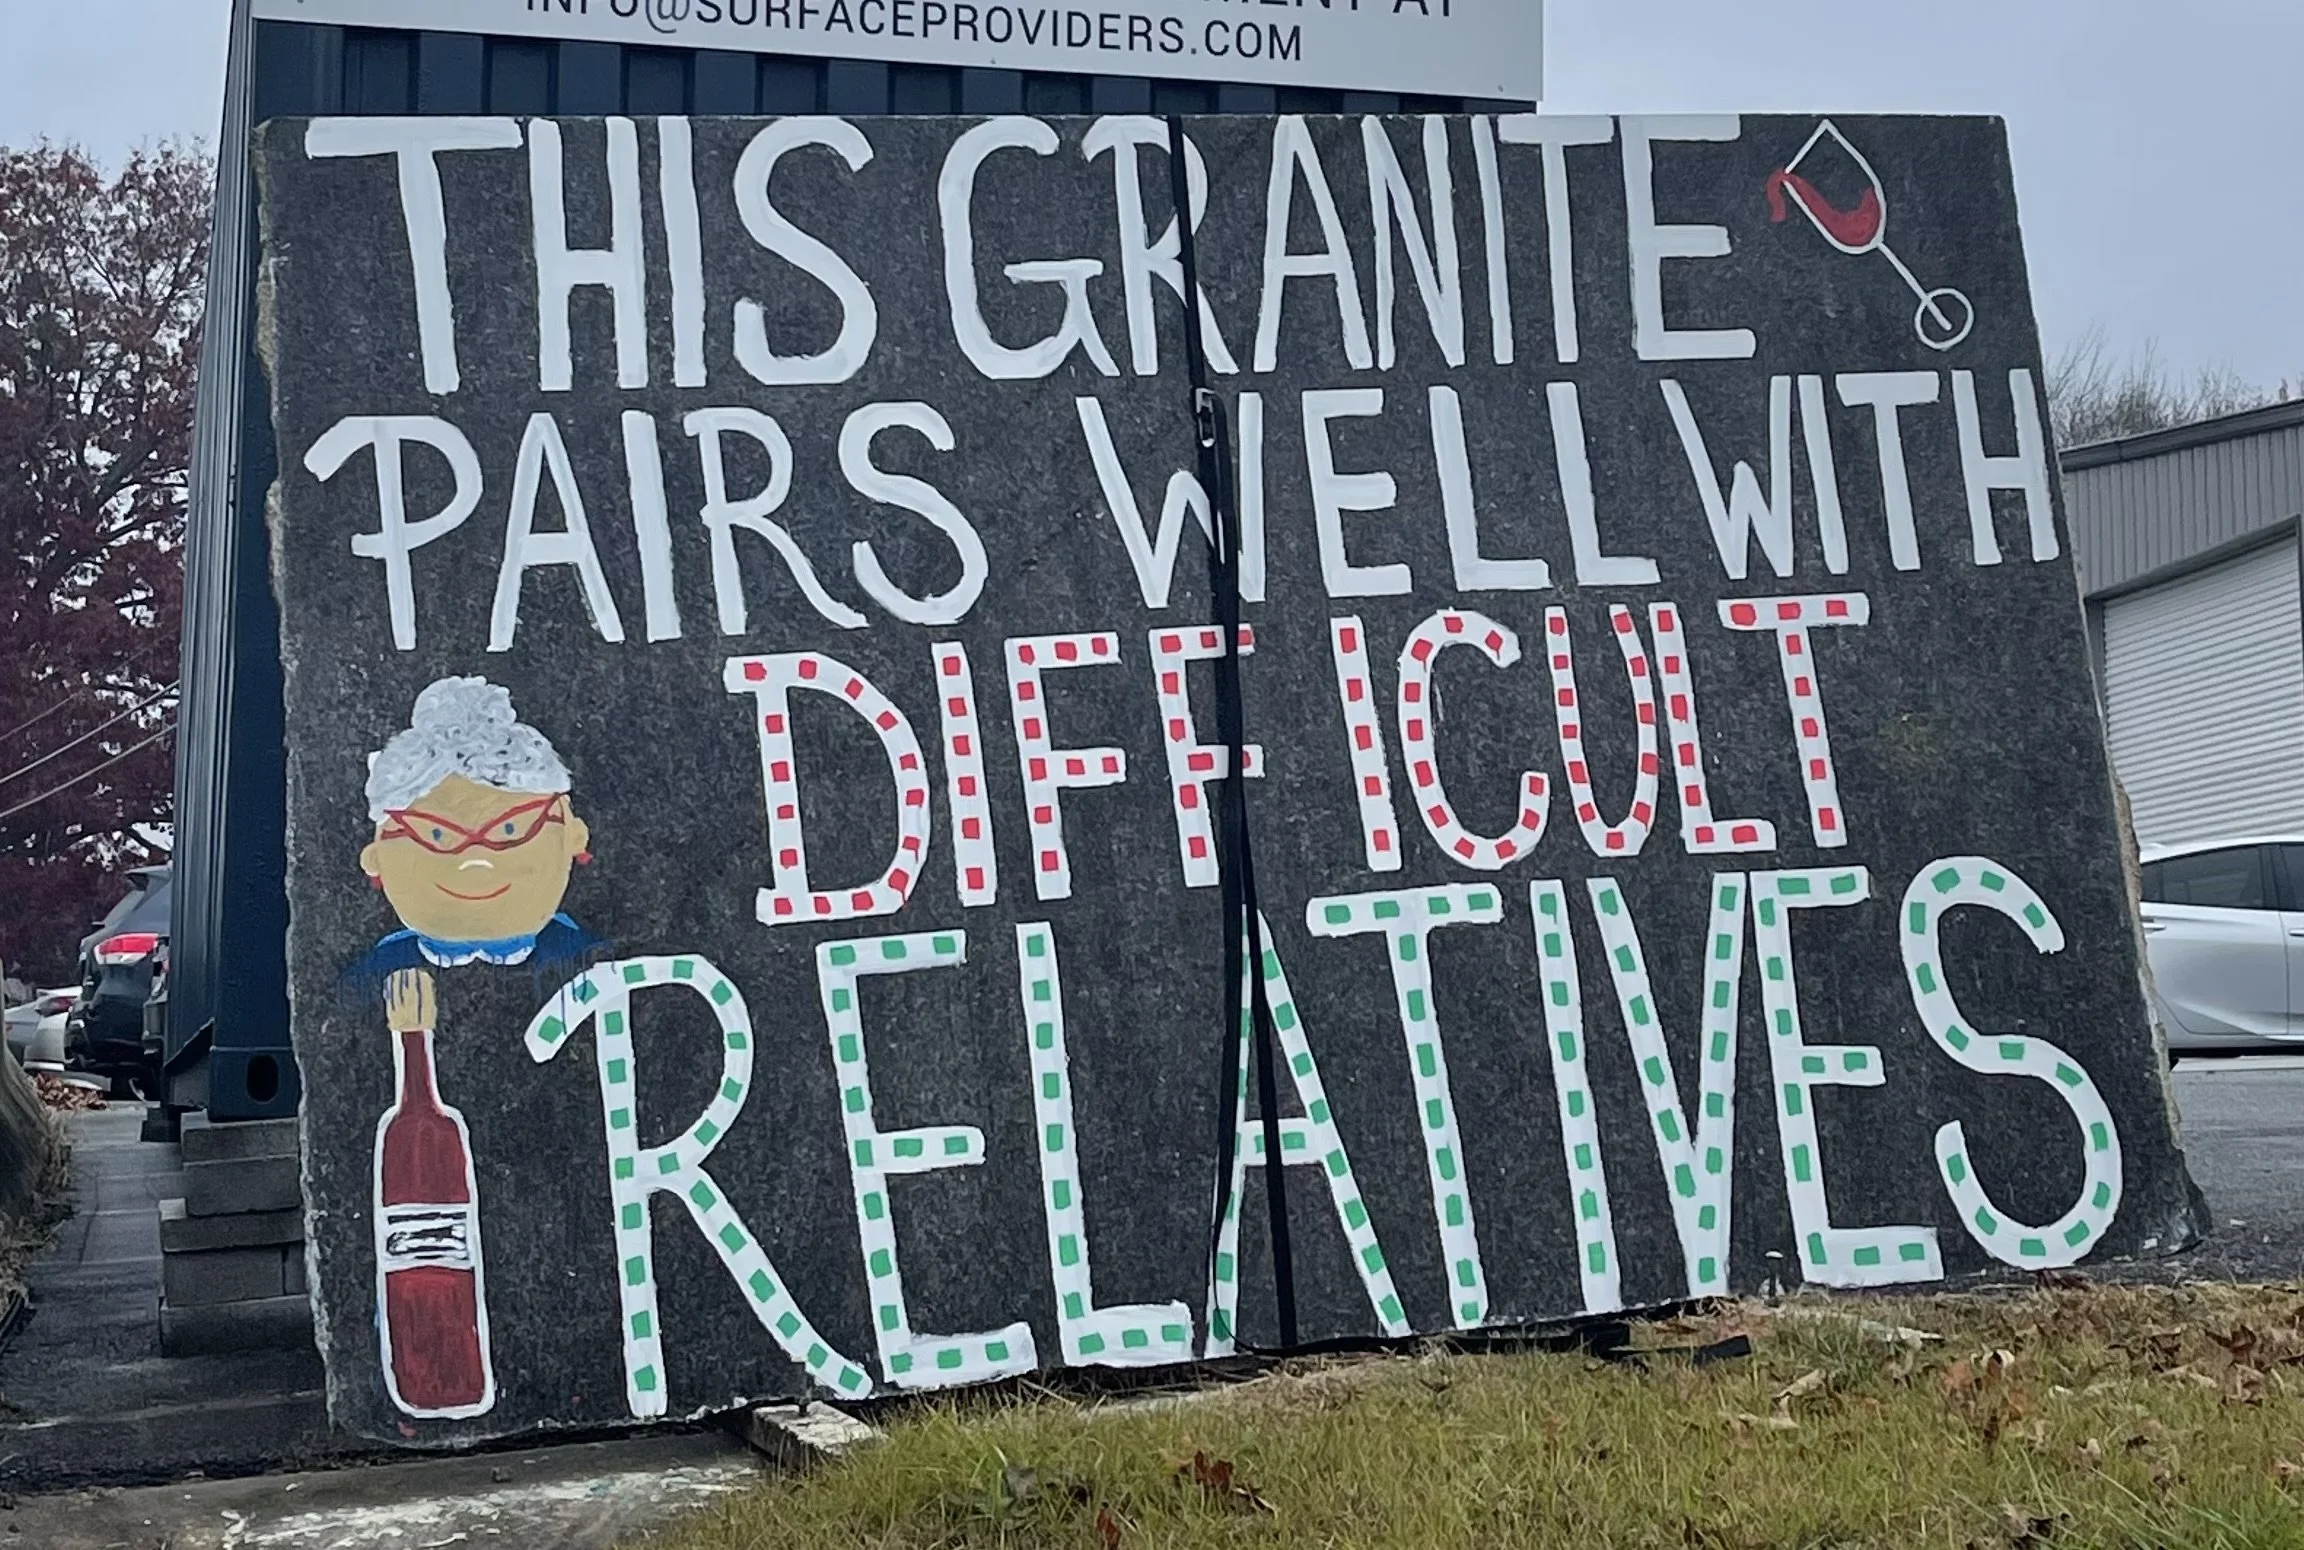 INFO@SURFACEPROVIDERS.COM
THIS GRANITE
PAIRS WELL WITH
DIFFICULT
RELATIVES